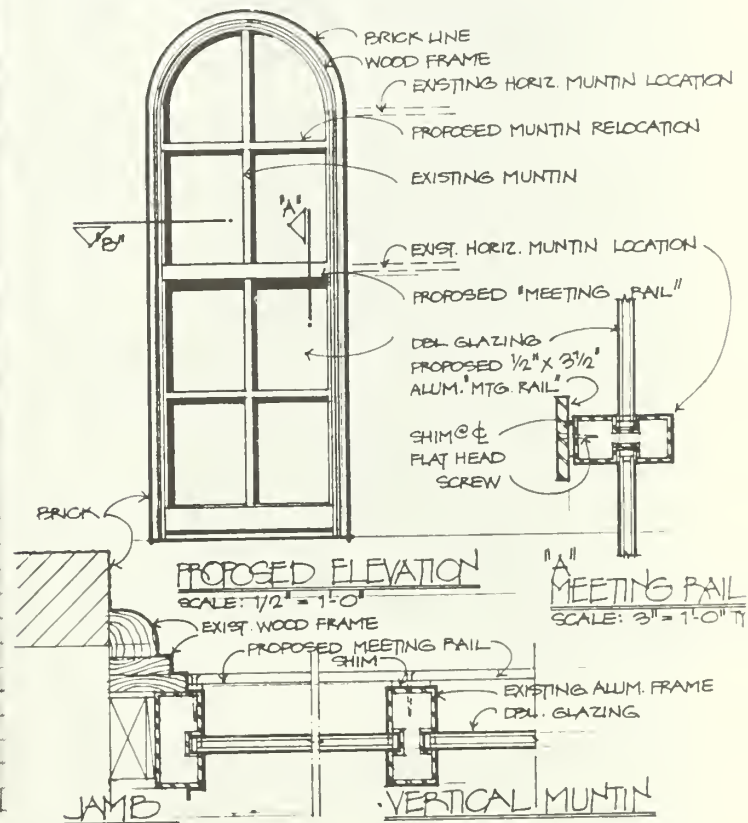 BRICK LINE
WOOD FRAME
EXISTING HORIZ. MUNTIN LOCATION
PROPOSED MUNTIN RELOCATION
EXISTING MUNTIN
"A"
"B"
EXIST. HORIZ. MUNTIN LOCATION
PROPOSED "MEETING RAIL"
DBL GLAZING
PROPOSED 1/2" X 3 1/2"
ALUM. "MTG. RAIL"
SHIM @ ℄
FLAT HEAD
SCREW
BRICK
PROPOSED ELEVATION
SCALE: 1/2" = 1'-0"
"A"
MEETING RAIL
SCALE: 3" = 1'-0"
EXIST. WOOD FRAME
PROPOSED MEETING RAIL
SHIM
EXISTING ALUM. FRAME
DBL. GLAZING
JAMB
VERTICAL MUNTIN